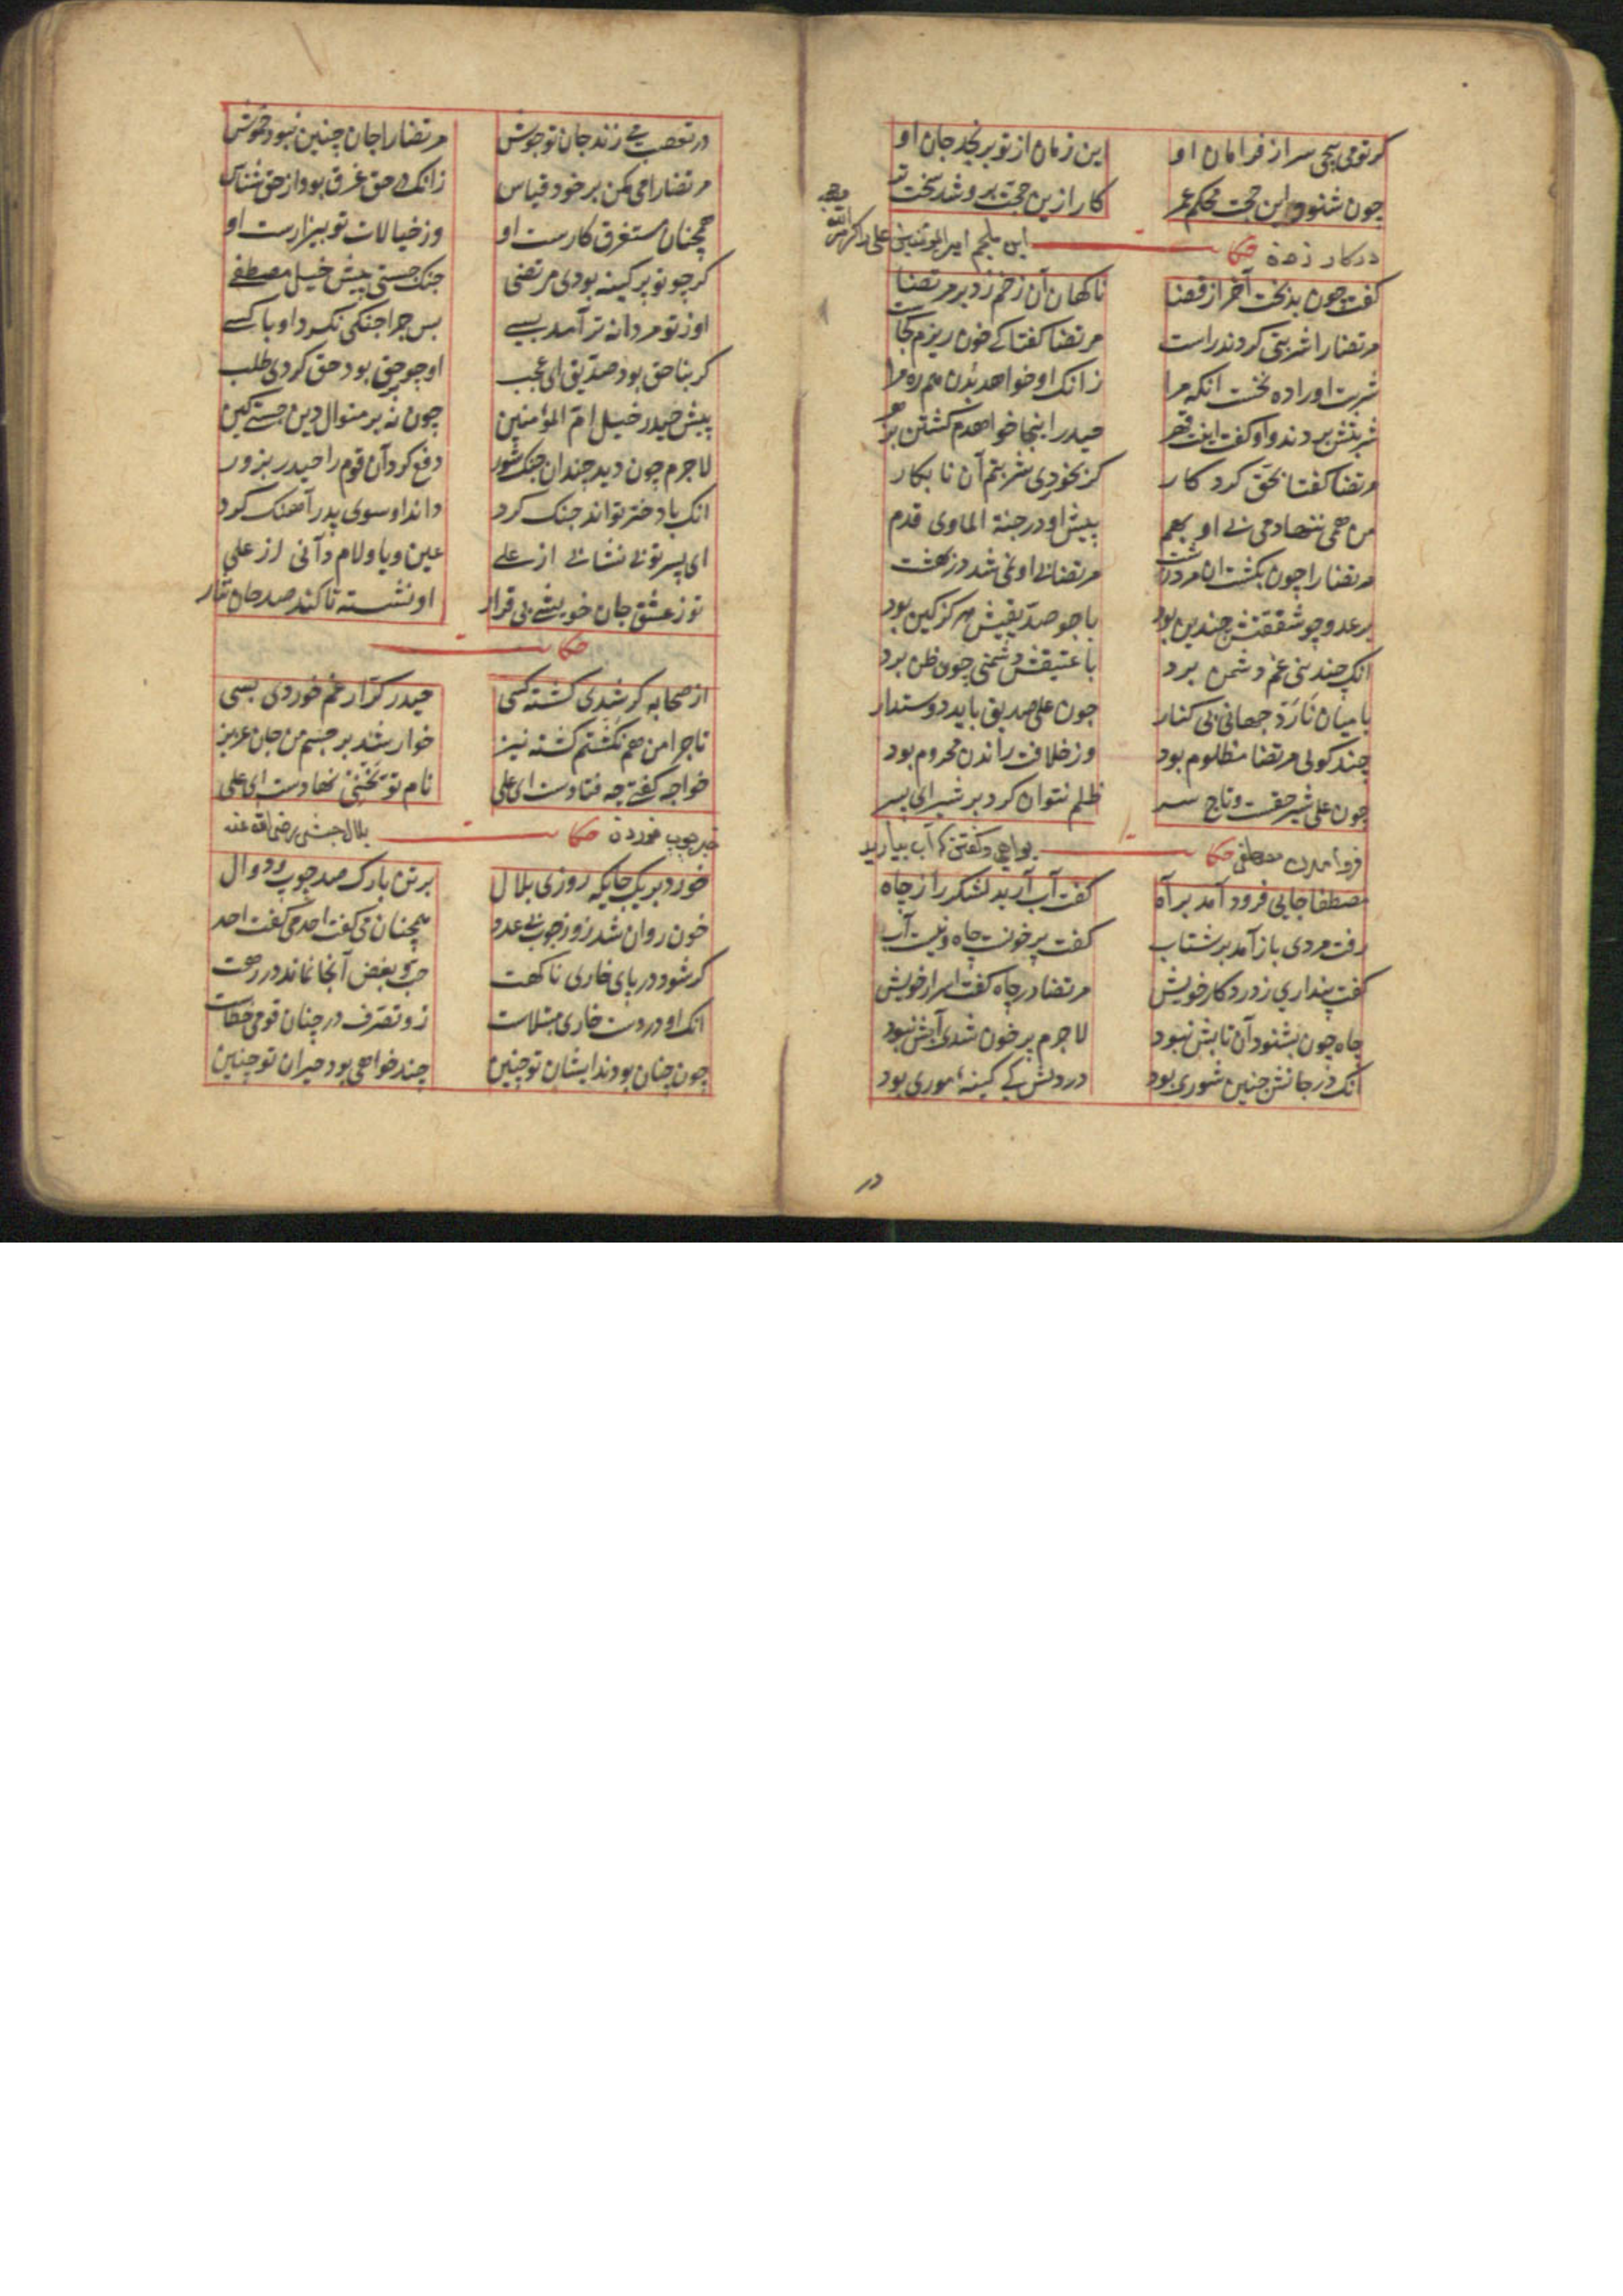 کر تو می پیچی سر از فرامان او این زمان از تو برنجد جان او
چون شنود این حجت محکم عمر کار ازین حجت برو شد سخت تر
در کار زدن حکایت ابن ملجم امیر المؤمنین علی را کرم الله وجهه
کفت چون بدبخت آخر از قضا ناکهان آن زخم زد بر مرتضا
مرتضا را شربتی کردند راست مرتضا کفتا که خون ریزم کجاست
شربت او را ده نخست انکه مرا زانک او خواهد بدن همره مرا
شربتش بردند و او کفت اینت قهر حیدر اینجا خواهدم کشتن بزهر
مرتضا کفتا بحق کرد کار کر بخوردی شربتم آن نابکار
من همی ننهادمی بی او بهم پیش او در جنة الماوی قدم
مرتضا را چون بکشت ان مرد زشت مرتضا بی او نمی شد در بهشت
بر عدو چو شفقتش چندین بود با چو صدیقیش هرکز کین بود
انک چندینی غم دشمن برد با عتیقش دشمنی چون ظن برد
با میان نارد جهانی بی کنار چون علی صدیق باید دوستدار
چند کوئی مرتضا مظلوم بود وز خلافت راندن محروم بود
چون علی شیر حقت و تاج سر ظلم نتوان کرد بر شیر ای پسر
فرو امدن مصطفی حکایت بواهی و کفتن که آب بیارید
مصطفا جایی فرود آمد براه کفت آب آرید لشکر را ز چاه
رفت مردی باز آمد بر شتاب کفت پر خونست چاه و نیست آب
کفت پنداری ز درد کار خویش مرتضا در چاه کفت اسرار خویش
چاه چون بشنود آن تابش نبود لاجرم پر خون شدی آبش نبود
انک در جانش چنین شوری بود در دلش کی کینه موری بود
در
در تعصب می زند جان تو جوش مرتضا را جان چنین نبود خموش
مرتضا را می مکن بر خود قیاس زانک در حق غرق بود از حق شناس
همچنان مستغرق کارست او وز خیالات تو بیزارست او
کر چو تو بر کینه بودی مرتضی جنک جستی پیش خیل مصطفی
او ز تو مردانه تر آمد بسی بس چرا جنکی نکرد او با کسی
کر بناحق بود صدیق ای عجب او چو بر حق بود حق کردی طلب
پیش حیدر خیل ام المؤمنین چون نه بر منوال دین جستی کین
لاجرم چون دید چندان جنک و شور دفع کرد آن قوم را حیدر بزور
انک با دختر تواند جنک کرد داند او سوی پدر آهنک کرد
ای پسر تو بی نشانی از علی عین و یا و لام دانی از علی
تو ز عشق جان خویشی بی قرار او نشسته تا کند صد جان نثار
حکایت
از صحابه کر شدی کشته کسی حیدر کرار غم خوردی بسی
تا چرا من هم نکشتم کشته نیز خوار شد بر چشم من جان عزیز
خواجه کفتی چه فتادست ای علی نام تو تختی نهادست ای علی
چوب خوردن حکایت بلال حبشی رضی الله عنه
خورد بر یک جایکه روزی بلال بر تن باریک صد چوب و دوال
خون روان شد زو ز چوب بی عدد همچنان می کفت احد می کفت احد
کر شود در پای خاری ناکهت حب و بغض آنجا نماند در رهت
انک او در دست خاری مبتلاست زو تصرف در چنان قومی خطاست
چون چنان بودند ایشان تو چنین چند خواهی بود حیران تو چنین